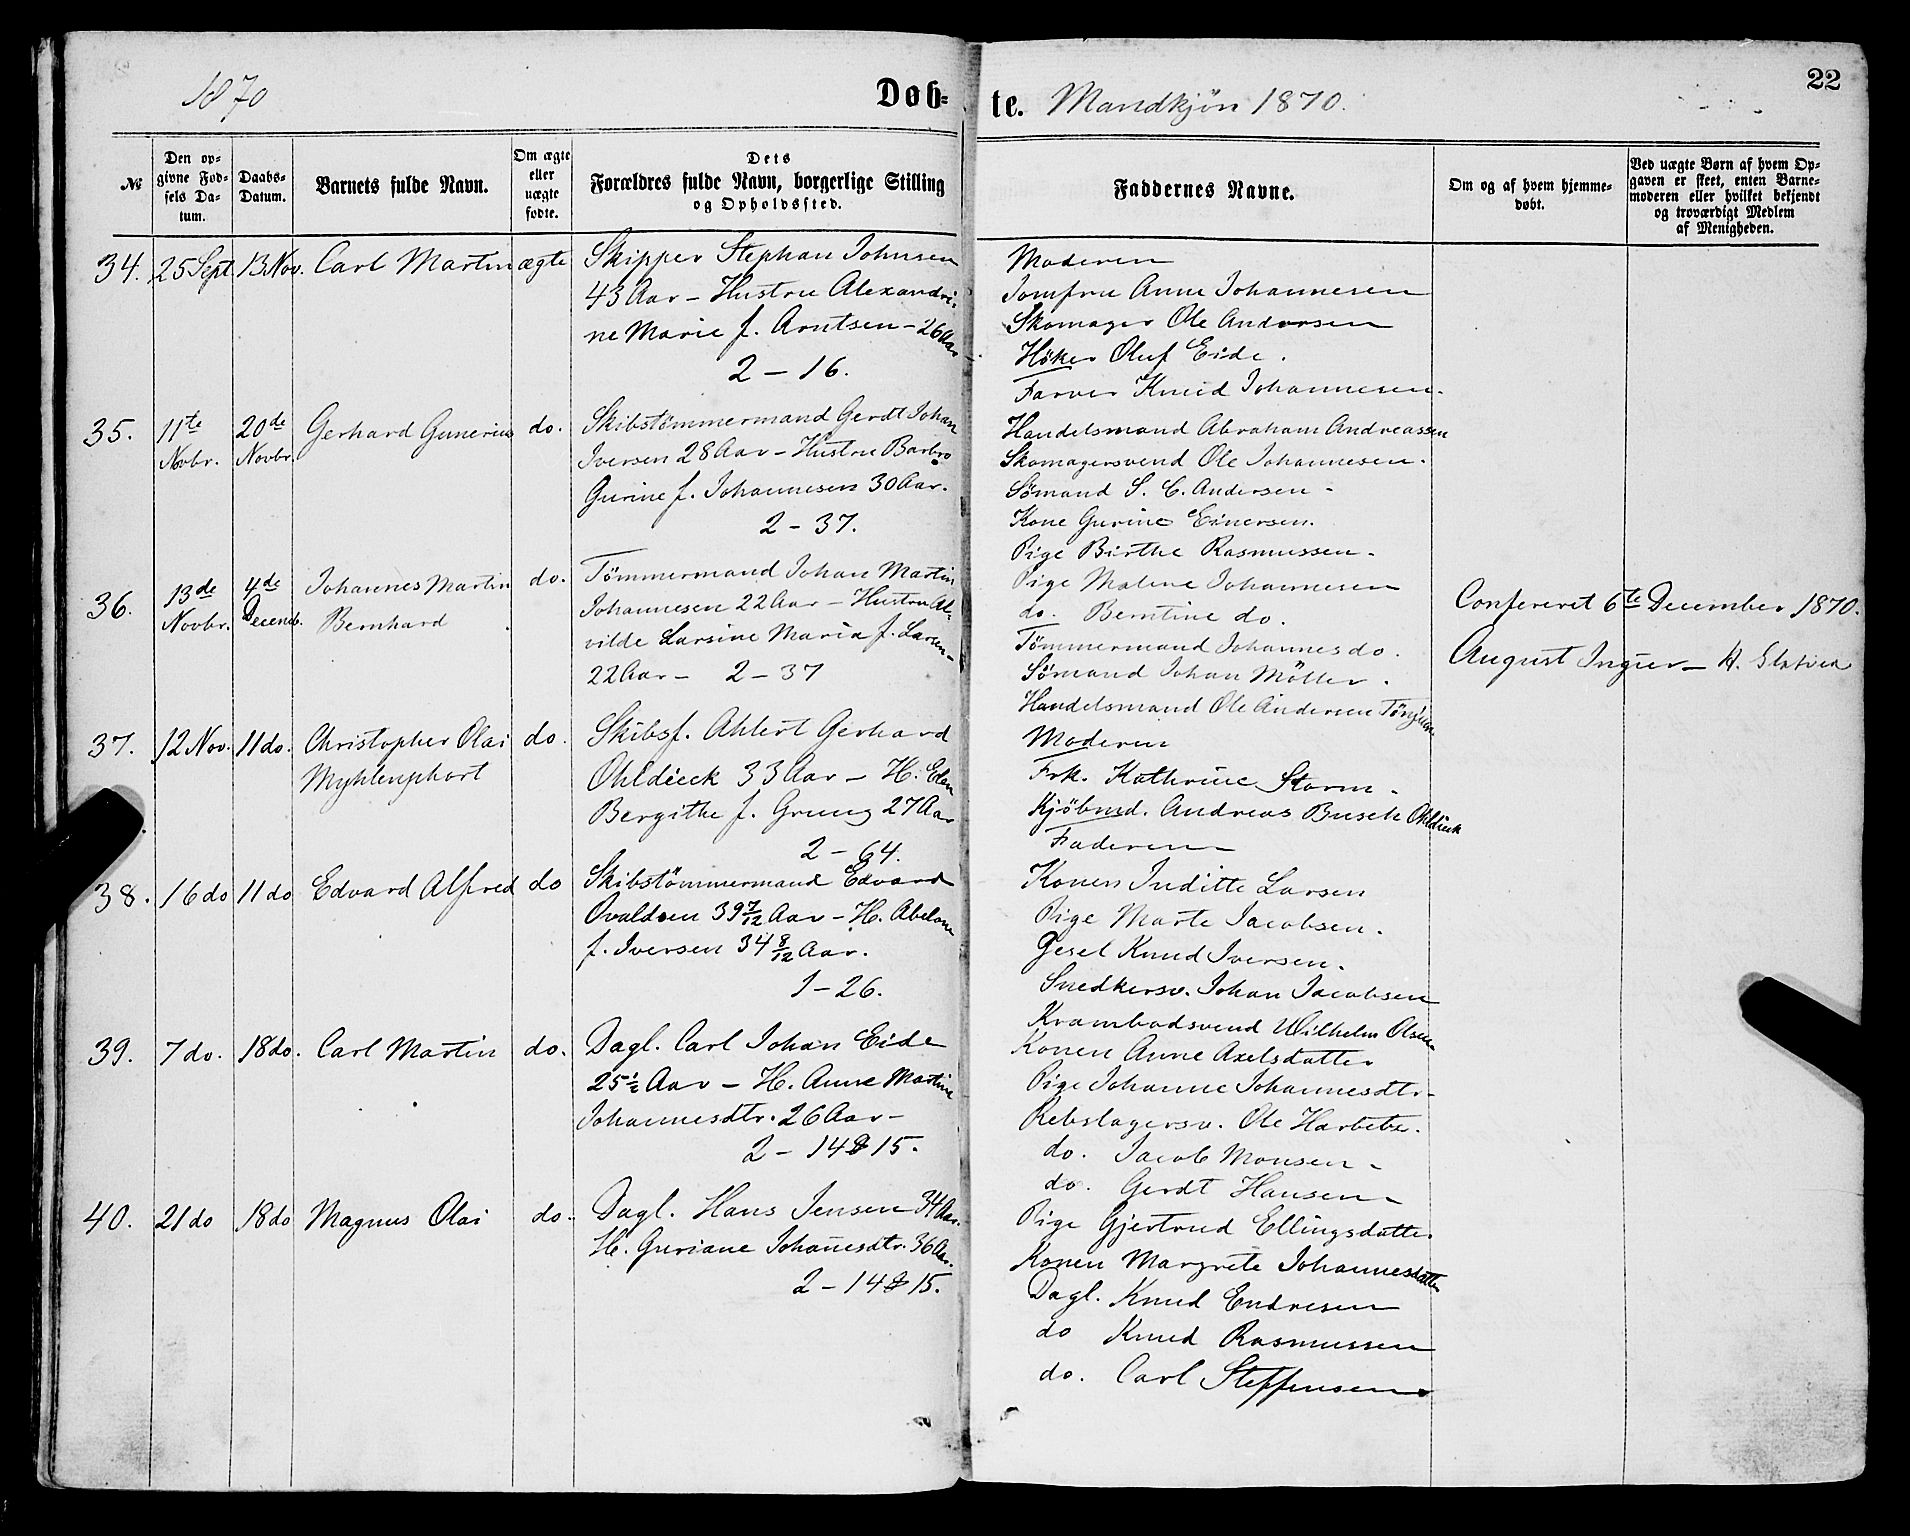 1870
Døb-
№
Den op-
givne Fød-
sels Da-
tum.
Daabs-
Datum.
Barnets fulde Navn.
Om ægte
eller
uægte
fødte.
Dets
Forældres fulde Navn, borgerlige Stilling
og Opholdssted.
34. 25 Sept. 13 Nov. Carl Martin ægte Skipper Stephan Johnsen
43 Aar – Hustru Alexandri-
ne Marie f. Arntsen – 26 Aar –
2 – 16.
35. 11te Novbr. 20de Novbr. Gerhard Gunerius do. Skibstømmermand Gerdt Johan
Iversen 28 Aar – Hustru Barbro
Gurine f. Johannesen 30 Aar.
2 – 37.
36. 13de Novbr. 4de Decemb. Johannes Martin Bernhard do. Tømmermand Johan Martin
Johannesen 22 Aar – Hustru Al-
vilde Larsine Maria f. Larsen –
22 Aar – 2 – 37
37. 12 Nov. 11 do. Christopher Olai Myhlenphort do. Skibsf. Ahlert Gerhard
Ohldieck 33 Aar – H. Elen
Bergithe f. Grung 27 Aar
2 – 64.
38. 16 do 11 do Edvard Alfred do Skibstømmermand Edvard
Ovaldsen 39 7/12 Aar – H. Abelone
f. Iversen 34 8/12 Aar.
1 – 26.
39. 7 do. 18 do. Carl Martin do. Dagl. Carl Johan Eide
25 1/2 Aar – H. Anne Martine
Johannesdtr. 26 Aar –
2 – 14 & 15.
40. 21 do 18 do Magnus Olai do. Dagl. Hans Jensen 34 Aar.
H. Guriane Johañesdtr. 36 Aar.
2 – 14 & 15.
te. Mandkjøn 1870.
22
Faddernes Navne.
Om og af hvem hjemme-
døbt.
Ved uægte Børn af hvem Op-
gaven er skeet, enten Barne-
moderen eller hvilket bekjendt
og troværdigt Medlem
af Menigheden.
Moderen
Jomfru Anne Johannesen
Skomager Ole Andersen
Høker Oluf Eide.
Farver Knud Johannesen.
Handelsmand Abraham Andreassen
Skomagersvend Ole Johannesen.
Sømand S. C. Andersen –
Kone Gurine Einersen.
Pige Birthe Rasmussen –
Pige Malene Johannesen
do. Berntine do.
Tømmermand Johannes do.
Sømand Johan Møller.
Handelsmand Ole Andersen
Confereret 6te December 1870.
August Ingier – H.
Moderen
Frk. Kathrine Storm –
Kjøbmd. Andreas Busch Ohldieck
Faderen –
Konen Juditte Larsen
Pige Marte Jacobsen.
Gesel Knud Iversen.
Snedkersv. Johan Jacobsen
Krambodsvend Wilhelm Olsen
Konen Anne Axelsdatter
Pige Johanne Johannesdtr.
Rebslagersv. Ole
do. Jacob Monsen –
do. Gerdt Hansen –
Pige Gjertrud Ellingsdatter
Konen Margrete Johannesdatter
Dagl. Knud Endresen
do Knud Rasmussen
do. Carl Steffensen